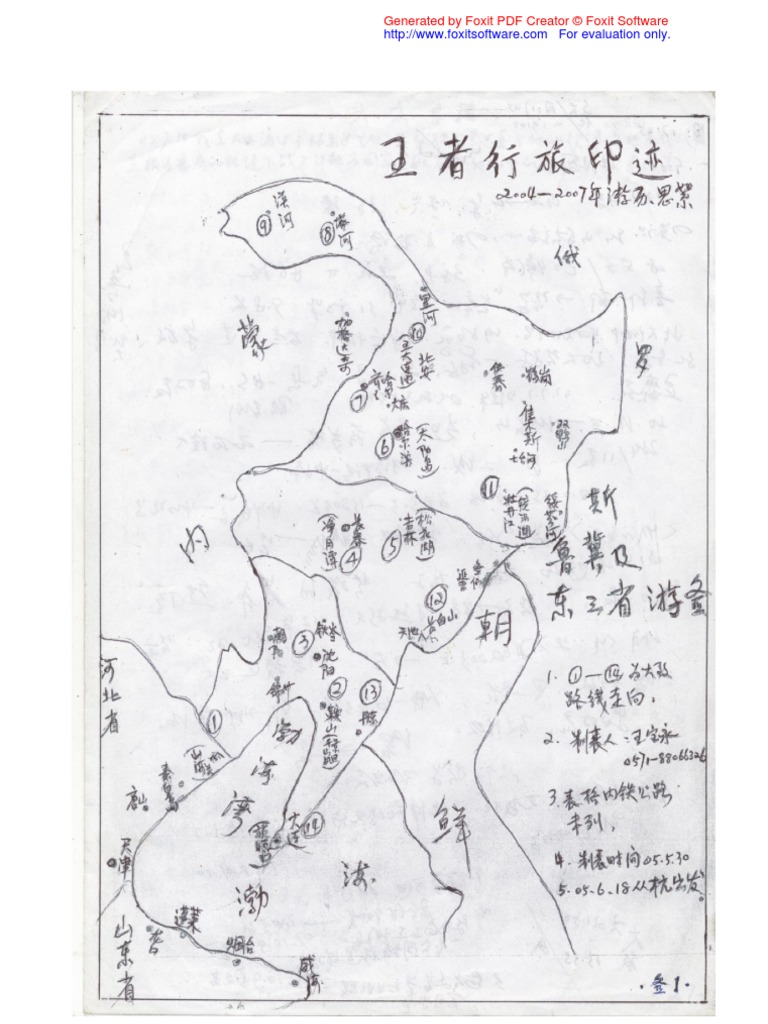 Generated by Foxit PDF Creator © Foxit Software
http://www.foxitsoftware.com For evaluation only.
王者行旅印迹
2004—2007年游历思絮
漠河
⑨
塔河
⑧
俄
罗
斯
黑河
⑩
五大连池
北安
加格达奇
蒙
内
⑦
大庆
伊春
鹤岗
双鸭山
七台河
⑥
哈尔滨
(太阳岛)
⑪
牡丹江
(镜泊湖)
绥芬河
长春
(净月潭)
④
⑤
吉林
(松花湖)
⑫
长白山
天池
朝
鲜
鲁冀及
东三省游
朝阳
锦州
③
铁岭
沈阳
②
鞍山
⑬
辽
宁
河北省
①
秦皇岛
天津
大连
⑭
渤
海
山东省
蓬莱
烟台
威海
1. ①—⑭为大致
路线走向,
2. 制表人:王宝永
0571-88066326
3. 表格内铁公路
未列,
4. 制表时间05.5.30
5. 05.6.18从杭出发。